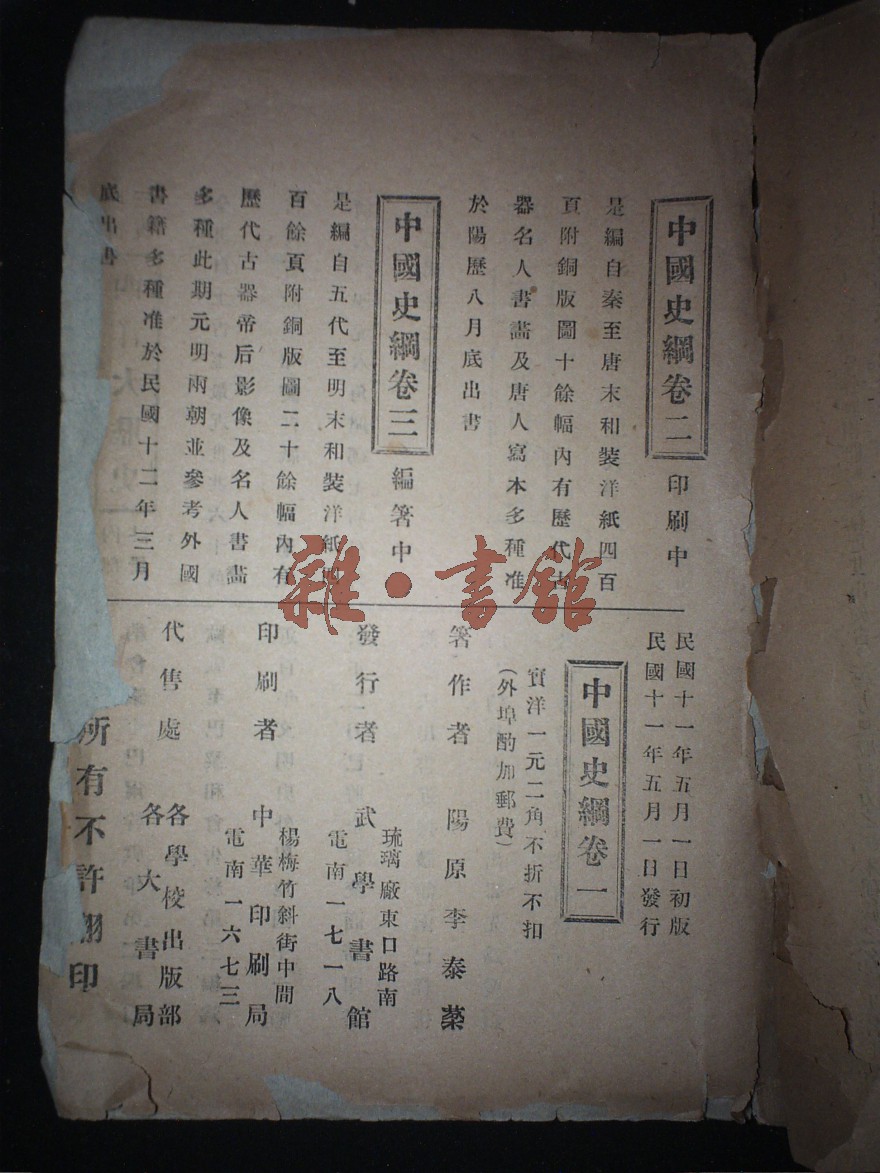 中國史綱卷二 印刷中
是編自秦至唐末和裝洋紙四百
頁附銅版圖十餘幅內有歷代古
器名人書畫及唐人寫本多種准
於陽歷八月底出書
中國史綱卷三 編箸中
是編自五代至明末和裝洋紙四
百餘頁附銅版圖二十餘幅內有
歷代古器帝后影像及名人書畫
多種此期元明兩朝並參考外國
書籍多種准於民國十二年三月
底出書
民國十一年五月一日初版
民國十一年五月一日發行
中國史綱卷一
實洋一元二角不折不扣
(外埠酌加郵費)
箸作者 陽原李泰棻
發行者
琉璃廠東口路南
武學書館
電南一七一八
印刷者
楊梅竹斜街中間
中華印刷局
電南一六七三
代售處
各學校出版部
各大書局
所有不許翻印
雜·書館